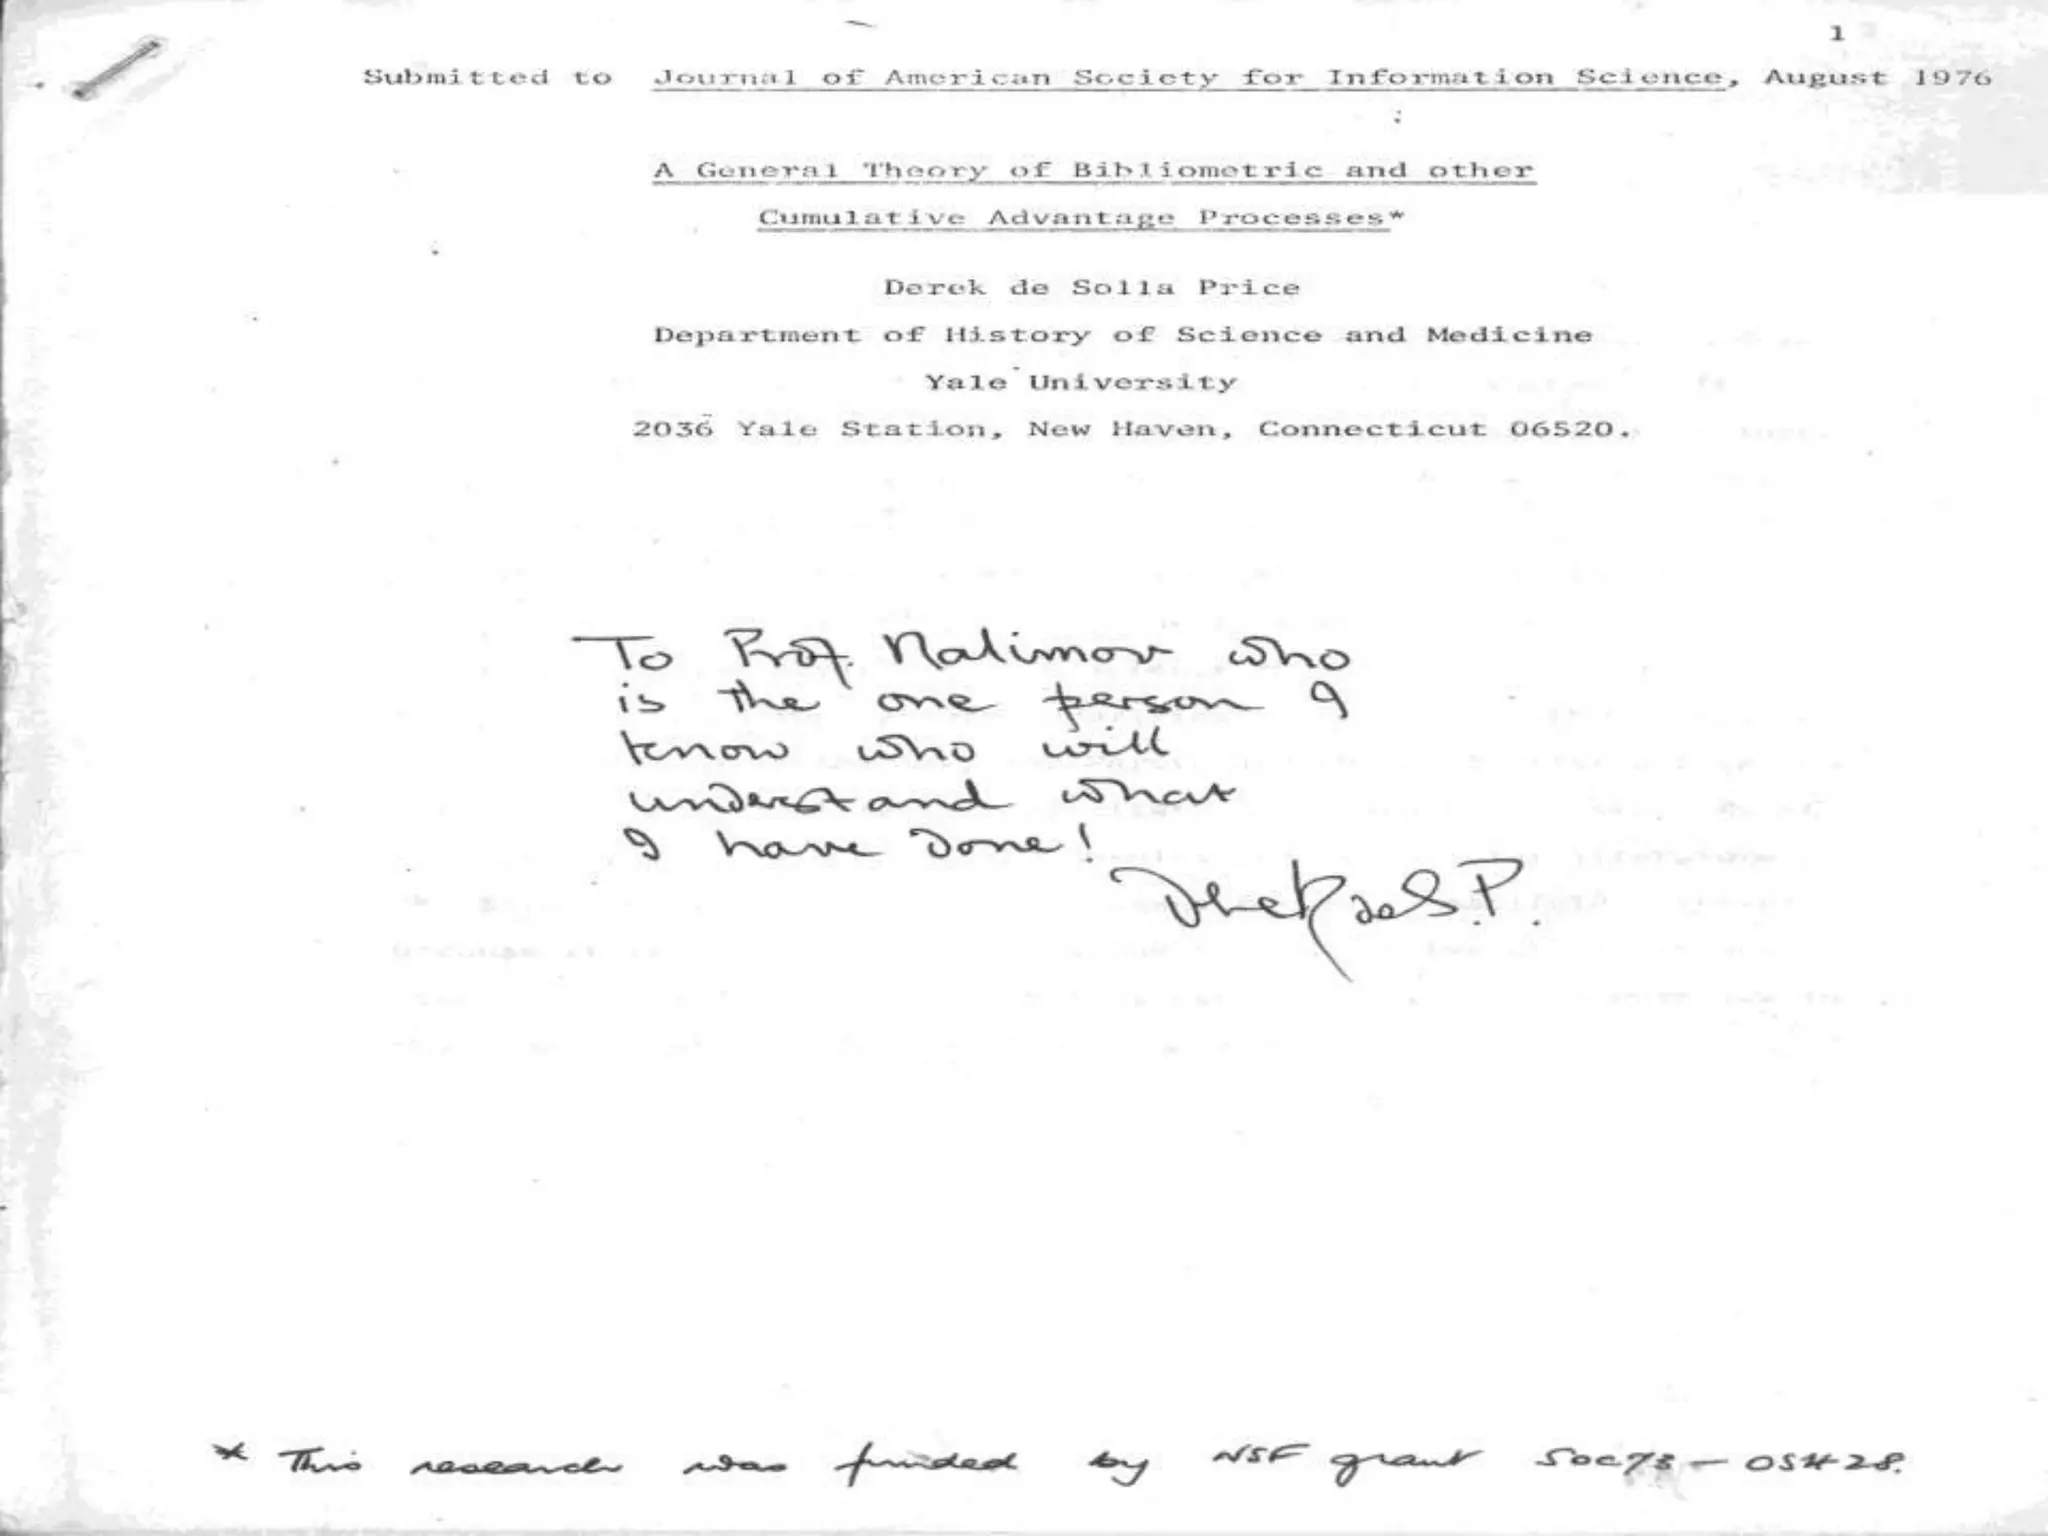 1
Submitted to Journal of American Society for Information Science, August 1976
A General Theory of Bibliometric and other
Cumulative Advantage Processes*
Derek de Solla Price
Department of History of Science and Medicine
Yale University
2036 Yale Station, New Haven, Connecticut 06520.
To Prof. Nalimov who
is the one person I
know who will
understand what
I have done!
Derek de S. P.
* This research was funded by NSF grant